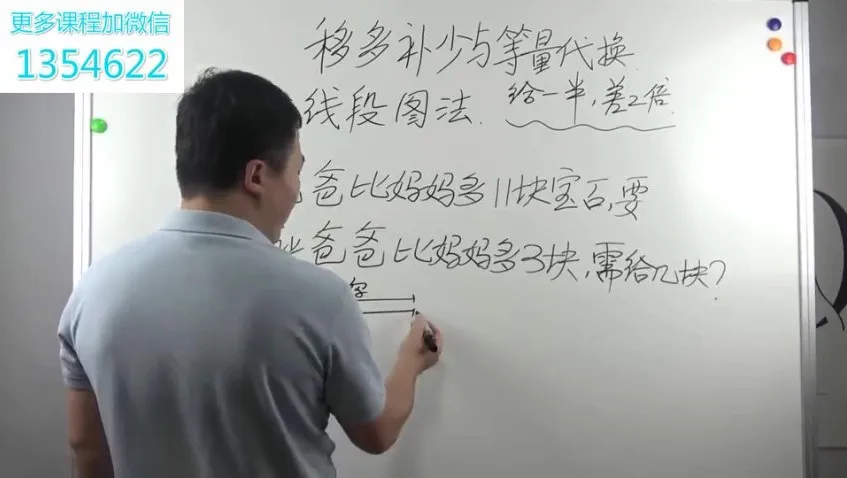 更多课程加微信
1354622
移多补少与等量代换
线段图法. 给一半,差2倍
爸比妈妈多11块宝石,要
爸爸比妈妈多3块,需给几块?